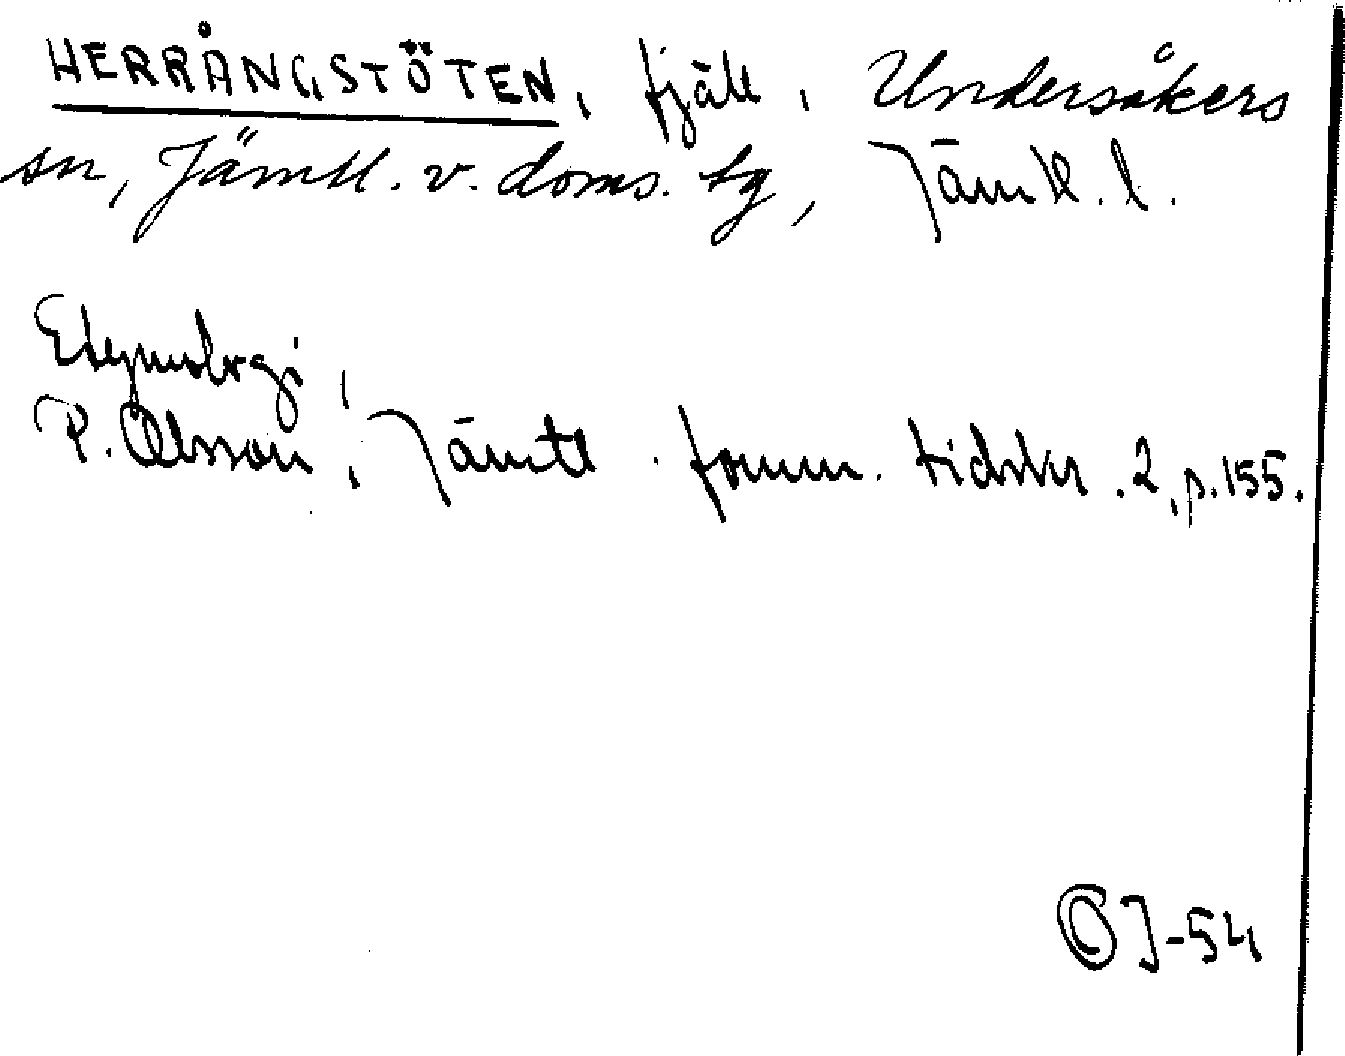 HERRÅNGSTÖTEN, fjäll, Undersåkers
sn, Jämtl. v. doms. tg, Jämtl. l.
Etymologi,
P. Olsson, Jämtl. fornm. tidskr. 2, p. 155.
OJ-54